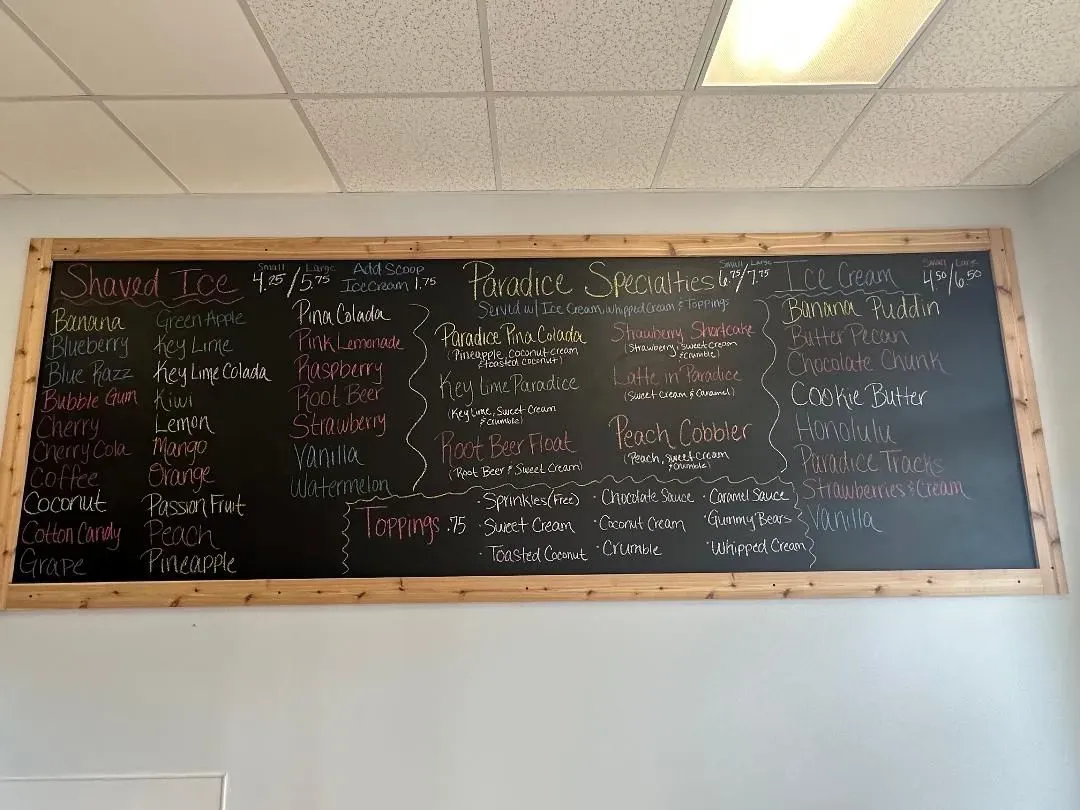 Shaved Ice
Small Large
4.25/5.75
Add Scoop
Ice Cream 1.75
Banana
Blueberry
Blue Razz
Bubble Gum
Cherry
Cherry Cola
Coffee
Coconut
Cotton Candy
Grape
Green Apple
Key Lime
Key Lime Colada
Kiwi
Lemon
Mango
Orange
Passion Fruit
Peach
Pineapple
Pina Colada
Pink Lemonade
Raspberry
Root Beer
Strawberry
Vanilla
Watermelon
Paradice Specialties
Small Large
6.75/7.75
Served w/ Ice Cream, Whipped Cream & Toppings
Paradice Pina Colada
(Pineapple, Coconut Cream
& Toasted Coconut)
Key Lime Paradice
(Key Lime, Sweet Cream
& Crumble)
Root Beer Float
(Root Beer & Sweet Cream)
Strawberry Shortcake
(Strawberry, Sweet Cream
& Crumble)
Latte in Paradice
(Sweet Cream & Caramel)
Peach Cobbler
(Peach, Sweet Cream
& Crumble)
Toppings .75
· Sprinkles (Free)
· Sweet Cream
· Toasted Coconut
· Chocolate Sauce
· Coconut Cream
· Crumble
· Caramel Sauce
· Gummy Bears
· Whipped Cream
Ice Cream
Small Large
4.50/6.50
Banana Puddin
Butter Pecan
Chocolate Chunk
Cookie Butter
Honolulu
Paradice Tracks
Strawberries & Cream
Vanilla